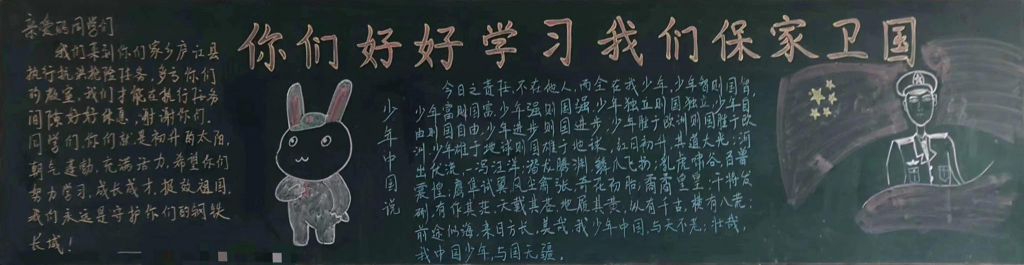 你们好好学习 我们保家卫国
亲爱的同学们
我们来到你们家乡庐江县
执行抗洪抢险任务,多亏你们
的教室,我们才能在执行任务
间隙好好休息,谢谢你们。
同学们,你们就是初升的太阳,
朝气蓬勃,充满活力,希望你们
努力学习,成长成才,报效祖国,
我们永远是守护你们的钢铁
长城!
少年中国说
今日之责任,不在他人,而全在我少年,少年智则国智,
少年富则国富,少年强则国强,少年独立则国独立,少年自
由则国自由,少年进步则国进步,少年胜于欧洲则国胜于欧
洲,少年雄于地球则国雄于地球,红日初升,其道大光;河
出伏流,一泻汪洋;潜龙腾渊,鳞爪飞扬;乳虎啸谷,百兽
震惶;鹰隼试翼,风尘翕张;奇花初胎,矞矞皇皇;干将发
硎,有作其芒;天戴其苍,地履其黄,纵有千古,横有八荒;
前途似海,来日方长,美哉,我少年中国,与天不老;壮哉,
我中国少年,与国无疆。